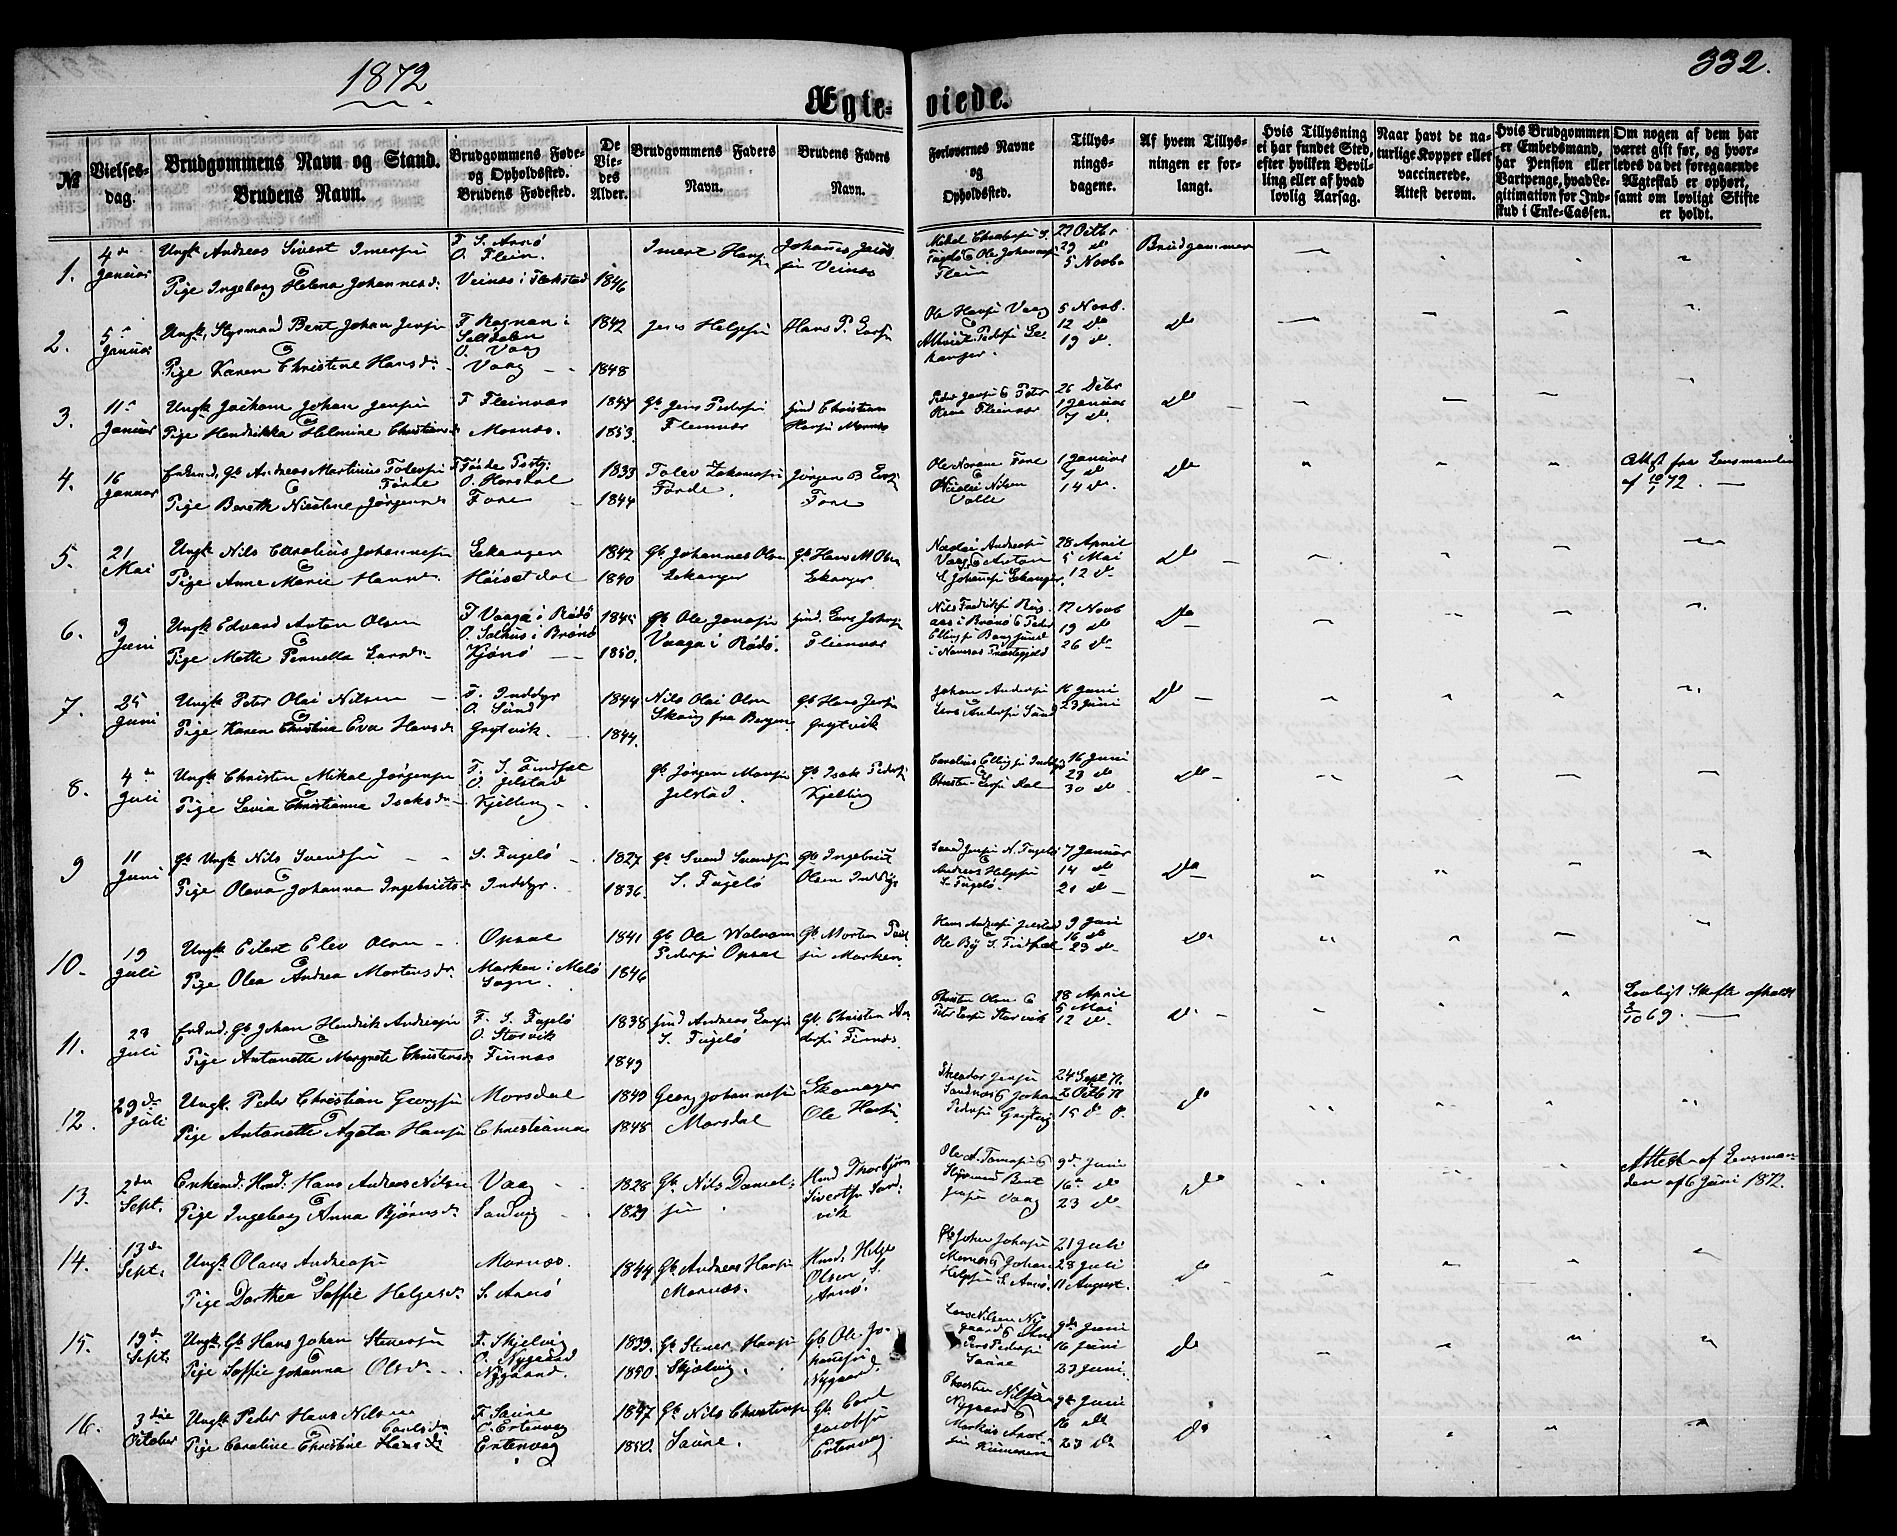 1872
332.
Ægteviede.
№
Vielses-
dag.
Brudgommens Navn og Stand.
Brudens Navn.
Brudgommens Føde-
og Opholdssted.
Brudens Fødested.
De
Vie-
des
Alder.
Brudgommens Faders
Navn.
Brudens Faders
Navn.
Forlovernes Navne
og
Opholdssted.
Tillys-
nings-
dagene.
Af hvem Tillys-
ningen er for-
langt.
Hvis Tillysning
ei har fundet Sted,
efter hvilken Bevil-
ling eller af hvad
lovlig Aarsag.
Naar havt de na-
turlige Kopper eller
vaccinerede.
Attest derom.
Hvis Brudgommen
er Embedsmand,
har Pension eller
Vartpenge, hvad Le-
gitimation for Ind-
skud i Enke-Cassen.
Om nogen af dem har
været gift før, og hvor-
ledes da det foregaaende
Ægteskab er ophørt,
samt om lovligt Skifte
er holdt.
1. 4de Januar
Ungk. Andreas Sivert Imertsen
Pige Ingeborg Helena Johannesd.
F. S. Arnø
O. Flein.
Veinæs i Flakstad 1846
Imert Hans
Johannes
Veinæs
Ole Johannes
Flein
22 Octbr
29 do
5 Novbr
Brudgommen
2. 5 Januar
Ungk. Bent Johan Jensen
Pige Karen Christine Hansd.
F. Rognan i
Saltdalen
O. Vaag
Vaag
1842
1848
Jens Helgesen
Hans P.
Ole Hansen Vaag
5 Novb.
12 do
19 do
do
3. 11 Januar
Ungk. Jochom Johan Jensen
Pige Hendrikka Helmine Christians
F. Fleinvær
Mornæs.
1847
1853.
Gb Jens Pedersen
Fleinvær
Ind Christian
Hansen Mornæs
Fleinvær
26 Debr
1 Januar
7 do
do
4. 16 Januar
Enkmd. Gb Andreas Martinius Tolevsen
Førde
Pige Berethe Nicoline Jørgensd.
O. Horsdal
Fore
1833
1844
Tolev
Førde.
Jørgen B
Fore
Ole Fore
Nilsen
Valle
1 Januar
7 do
14 do.
do
Attest fra Lensmanden
af 10/1 72.
5. 21 Mai
Ungk. Nils Carolius Johannesen
Pige Anne Marie Hansd.
Lekanger
Høisetdal
1842
1840
Gb Johannes Olsen
Lekanger
Gb Hans M Olsen
Lekanger
Vaag Anton
Lekanger
28 April
5 Mai
12 do
do
6. 9 Juni
Ungk. Edvard Anton Olsen
Pige Mette Pernella Larsd.
F. Vaaga i Rødø
O. Salhus i Brønø
Kjønø
1845
1850.
Gb Ole Jonasen
Vaaga i Rødø.
Ind. Lars Johns
Fleinvær
Nils Fredriks
i Brønø Peder
i Præstegjeld
12 Novb
19 do
26 do
do
7. 25 Juni
Ungk. Peter Olai Nilsen
Pige Karen Christina Eva Hansd.
F. Inddyr
O. Sund
Grytvik.
1844
1844.
Nils Olai Olsen
fra Bergen
Gb Hans Jens
Grytvik
Johan Andersen
Lars Andersen Sund
16 Juni
23 Juni
do
8. 4de Juli
Ungk. Christen Mikal Jørgensen
Pige Levia Christianna Isaksd.
F. S. Findset
O. Jelstad
Kjelling
Gb Jørgen
Jelstad.
Gb. Isak Peders
Kjelling
Carolius Inddyr
16 Juni
23 do
30 do
do
9 11 Juni
Gb Ungk. Nils Svendsen
Pige Olava Johanna Ingebrigts.
S. Fugelø
Inddyr.
1827
1836.
Gb Svend Svendsen
S. Fugelø
Gb Ingebrigt
Olsen Inddyr
N. Fugelø
Andreas Helgesen
S. Fugelø.
7 Januar
14 do
21 do
do
10. 19 Juli
Ungk. Eilert Elev Olsen
Pige Olea Andrea Mortensdr.
Opsal
Marken i Melø
Sogn.
1841
1846
Gb Ole
Pedersen Opsal
Gb Morten
Marken.
Hans Andreas Jelstad
Ole By S. Findset
9 Juni
16 do
23 do
do
11. 23 Juli
Enkmd. Gb Johan Hendrik Andreasen
Pige Antonette Margrete Christensd.
F. S. Fugelø
O. Storvik
Finnæs
1838
1849
Ind Andreas
S. Fugelø
Gb. Christen An-
dersen Finnæs.
Christen Olsen
Storvik
28 April
5 Mai
12 do.
do
Lovligt Skifte afholdt
2/10 69.
12. 29de Juli
Ungk. Peder Christian Georgsen
Pige Antonette Agata Hansen
Morsdal
Christiania
1849
1848
Georg Johannesen
Morsdal
Skomager
Ole Hansen
Theodor Jensen
Sandnæs Johan
Pedersen Grytvig
24 Sept
2 Octb
15 do
do
13. 2den Sept.
Enkemd. Hmd. Hans Andreas Nilsen
Pige Ingeborg Anna Bjørnsd.
Vaag
Sandvig
1828
1829
Gb. Nils Daniel-
sen
Hmd Thorbjørn
Sivertsen Sand-
vik
Ole A. Tomasen
Bent
Jensen Vaag
9de Juni
16 do
23 do
do
Attest af Lensman-
den af 6 Juni 1872.
14. 13de Sept.
Ungk. Olaus Andreasen
Pige Dorthea Soffie Helgesd.
Mornæs.
S. Arnø
1844
Gb. Andreas Hansen
Mornæs.
Hmd. Helge
Olsen S.
Arnø.
Mornæs Johan
Helgesen S. Arnø.
21 Juli
28 Juli
11 August.
do
15. 19de Sept.
Ungk. Gb. Hans Johan Stenersen
Pige Soffie Johanna Olsd.
F. Skjelvig
O. Nygaard
Nygaard.
1839.
1850.
Gb Stener Hansen
Skjelvig.
Gb. Ole Jo-
hannesen
Nygaard.
Lars Nilsen Ny-
gaard
Jens Pedersen
Saure
9de Juni
16 Juni
23 Juni
do
16. 3die October
Ungk. Peder Hans Nilsen
Pige Caroline Christine Carlsd.
F. Saure
O. Ertenvag
Ertenvag
1847
1850.
Gb. Nils Christensen
Saure.
Gb. Carl
Jacobsen
Ertenvag.
Christen Nilsen
Nygaard
Markus
9de Juni
16 do
23 do
do